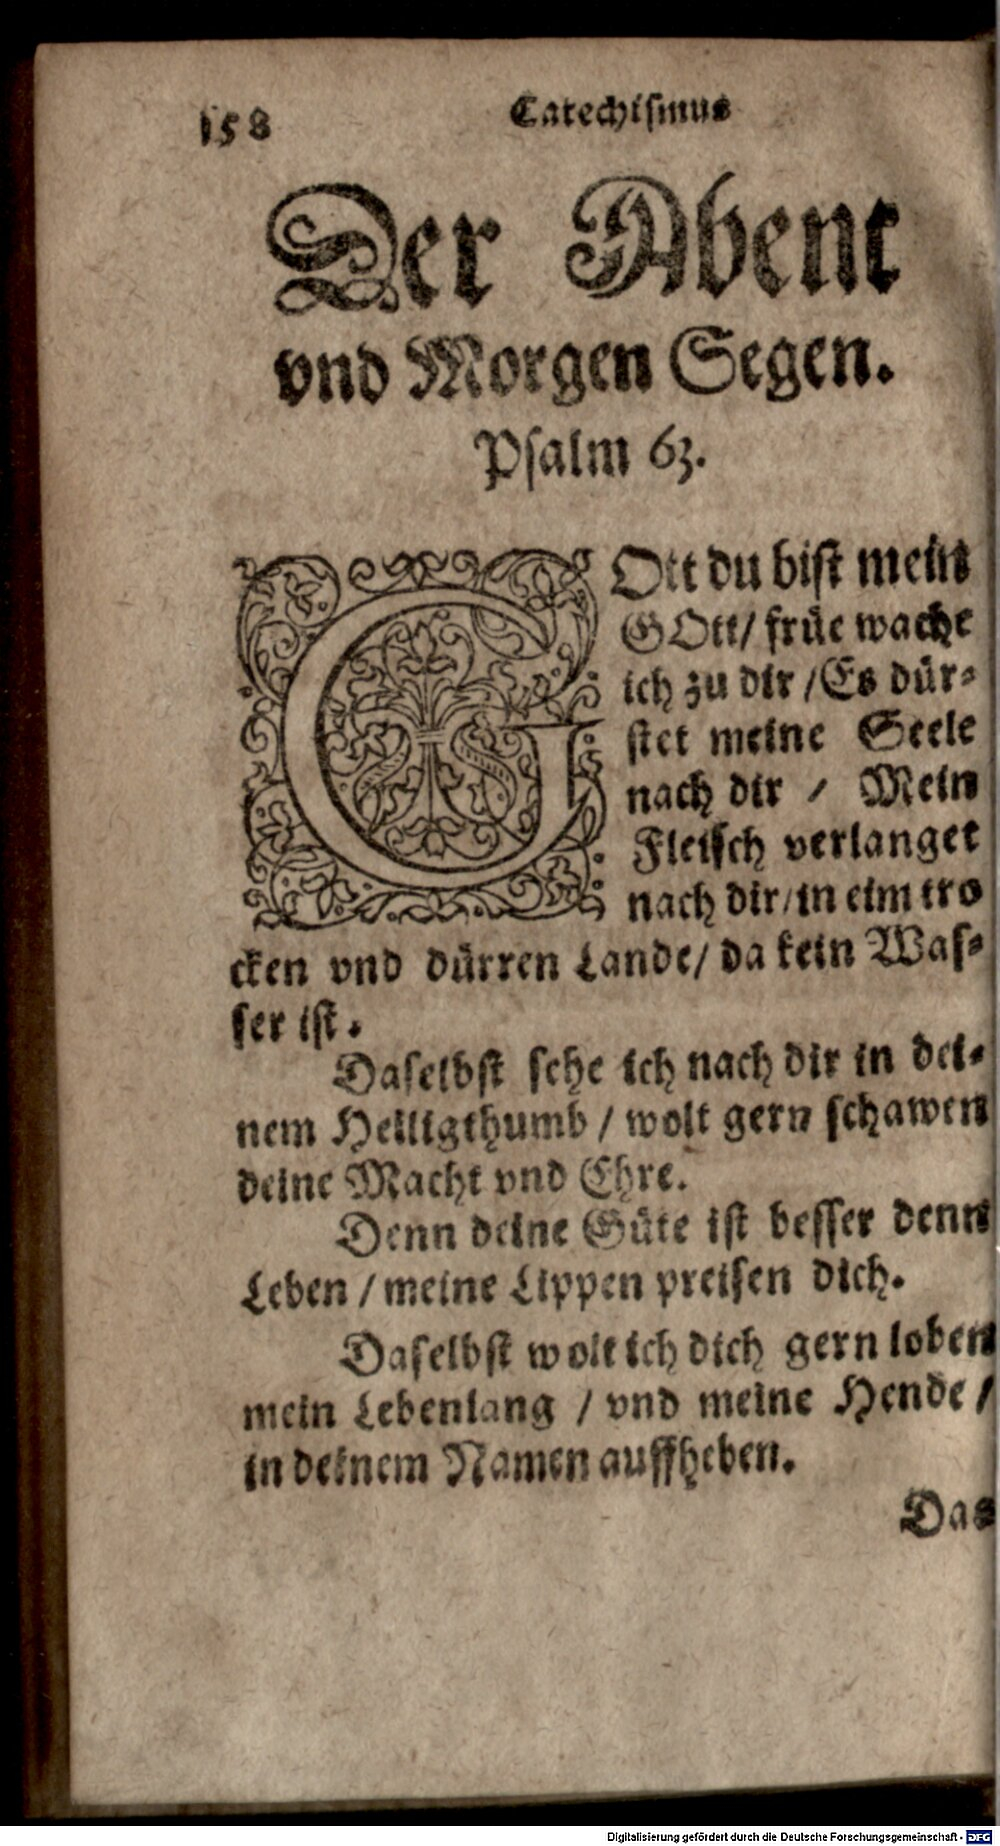 158 Catechismus
Der Abent
vnd Morgen Segen.
Psalm 63.
GOtt du bist mein
GOtt/ früe wache
ich zu dir /Es dür-
stet meine Seele
nach dir / Mein
Fleisch verlanget
nach dir/in eim tro
cken vnd dürren Lande/ da kein Was-
ser ist.
Daselbst sehe ich nach dir in dei-
nem Heiligthumb / wolt gern schawen
deine Macht vnd Ehre.
Denn deine Güte ist besser denn
Leben / meine Lippen preisen dich.
Daselbst wolt ich dich gern loben
mein Lebenlang / vnd meine Hende /
in deinem Namen auffheben.
Das
Digitalisierung gefördert durch die Deutsche Forschungsgemeinschaft - DFG